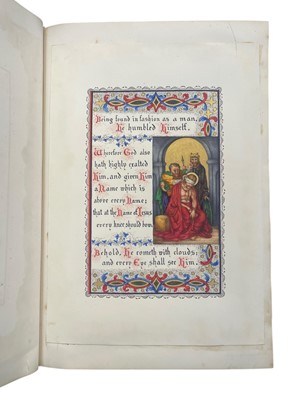 Being found in fashion as a man,
He humbled Himself.
Wherefore God also
hath highly exalted
Him, and given Him
a Name which is
above every Name;
that at the Name of Jesus
every knee should bow.
Behold, He cometh with clouds;
and every Eye shall see Him.